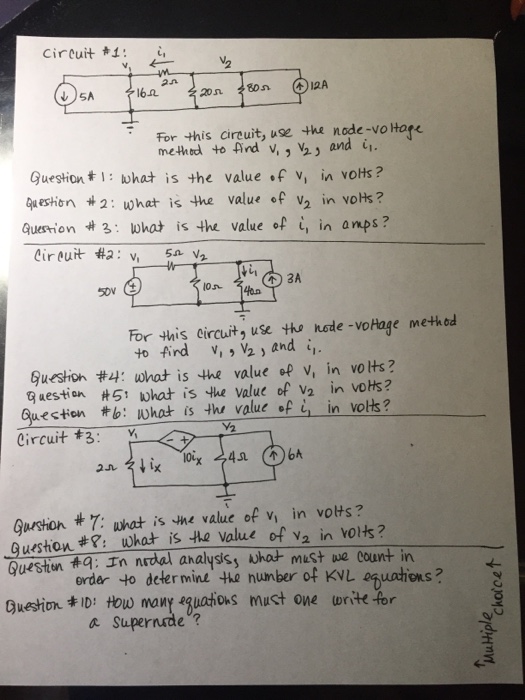 Circuit #1: i₁
V₁ V₂
2Ω
5A 16Ω 20Ω 80Ω 12A
For this circuit, use the node-voltage
method to find V₁, V₂, and i₁.
Question #1: what is the value of V₁ in volts?
Question #2: what is the value of V₂ in volts?
Question #3: what is the value of i₁ in amps?
Circuit #2: V₁ 5Ω V₂
50V 10Ω i₁ 40Ω 3A
For this circuit, use the node-voltage method
to find V₁, V₂, and i₁.
Question #4: what is the value of V₁ in volts?
Question #5: what is the value of V₂ in volts?
Question #6: what is the value of i₁ in volts?
Circuit #3: V₁ V₂
2Ω ix 10ix 4Ω 6A
Question #7: what is the value of V₁ in volts?
Question #8: what is the value of V₂ in volts?
Question #9: In nodal analysis, what must we count in
order to determine the number of KVL equations?
Question #10: How many equations must one write for
a supernode?
↑Multiple choice↑